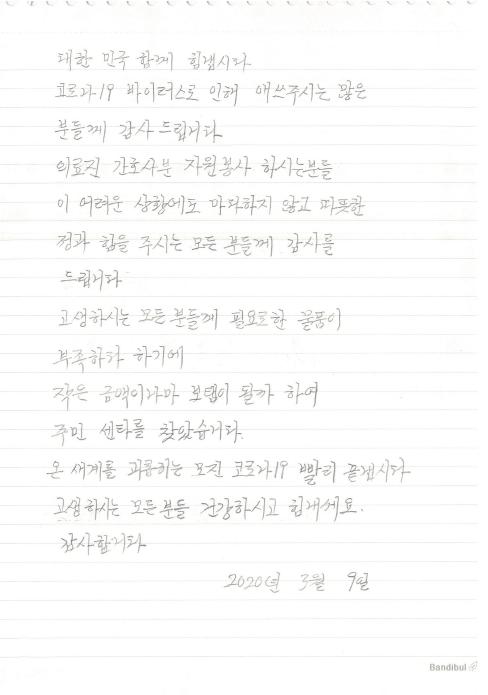 대한 민국 함께 힘냅시다
코로나19 바이러스로 인해 애쓰주시는 많은
분들께 감사 드립니다
의료진 간호사분 자원봉사 하시는분들
이 어려운 상황에도 마다하지 않고 따뜻한
정과 힘을 주시는 모든 분들께 감사를
드립니다
고생하시는 모든분들께 필요로한 물품이
부족하다 하기에
작은 금액이나마 보탬이 될까 하여
주민 센타를 찾았습니다.
온 세계를 괴롭히는 모진 코로나19 빨리 끝냅시다
고생하시는 모든분들 건강하시고 힘내세요.
감사합니다
2020년 3월 9일
Bandibul